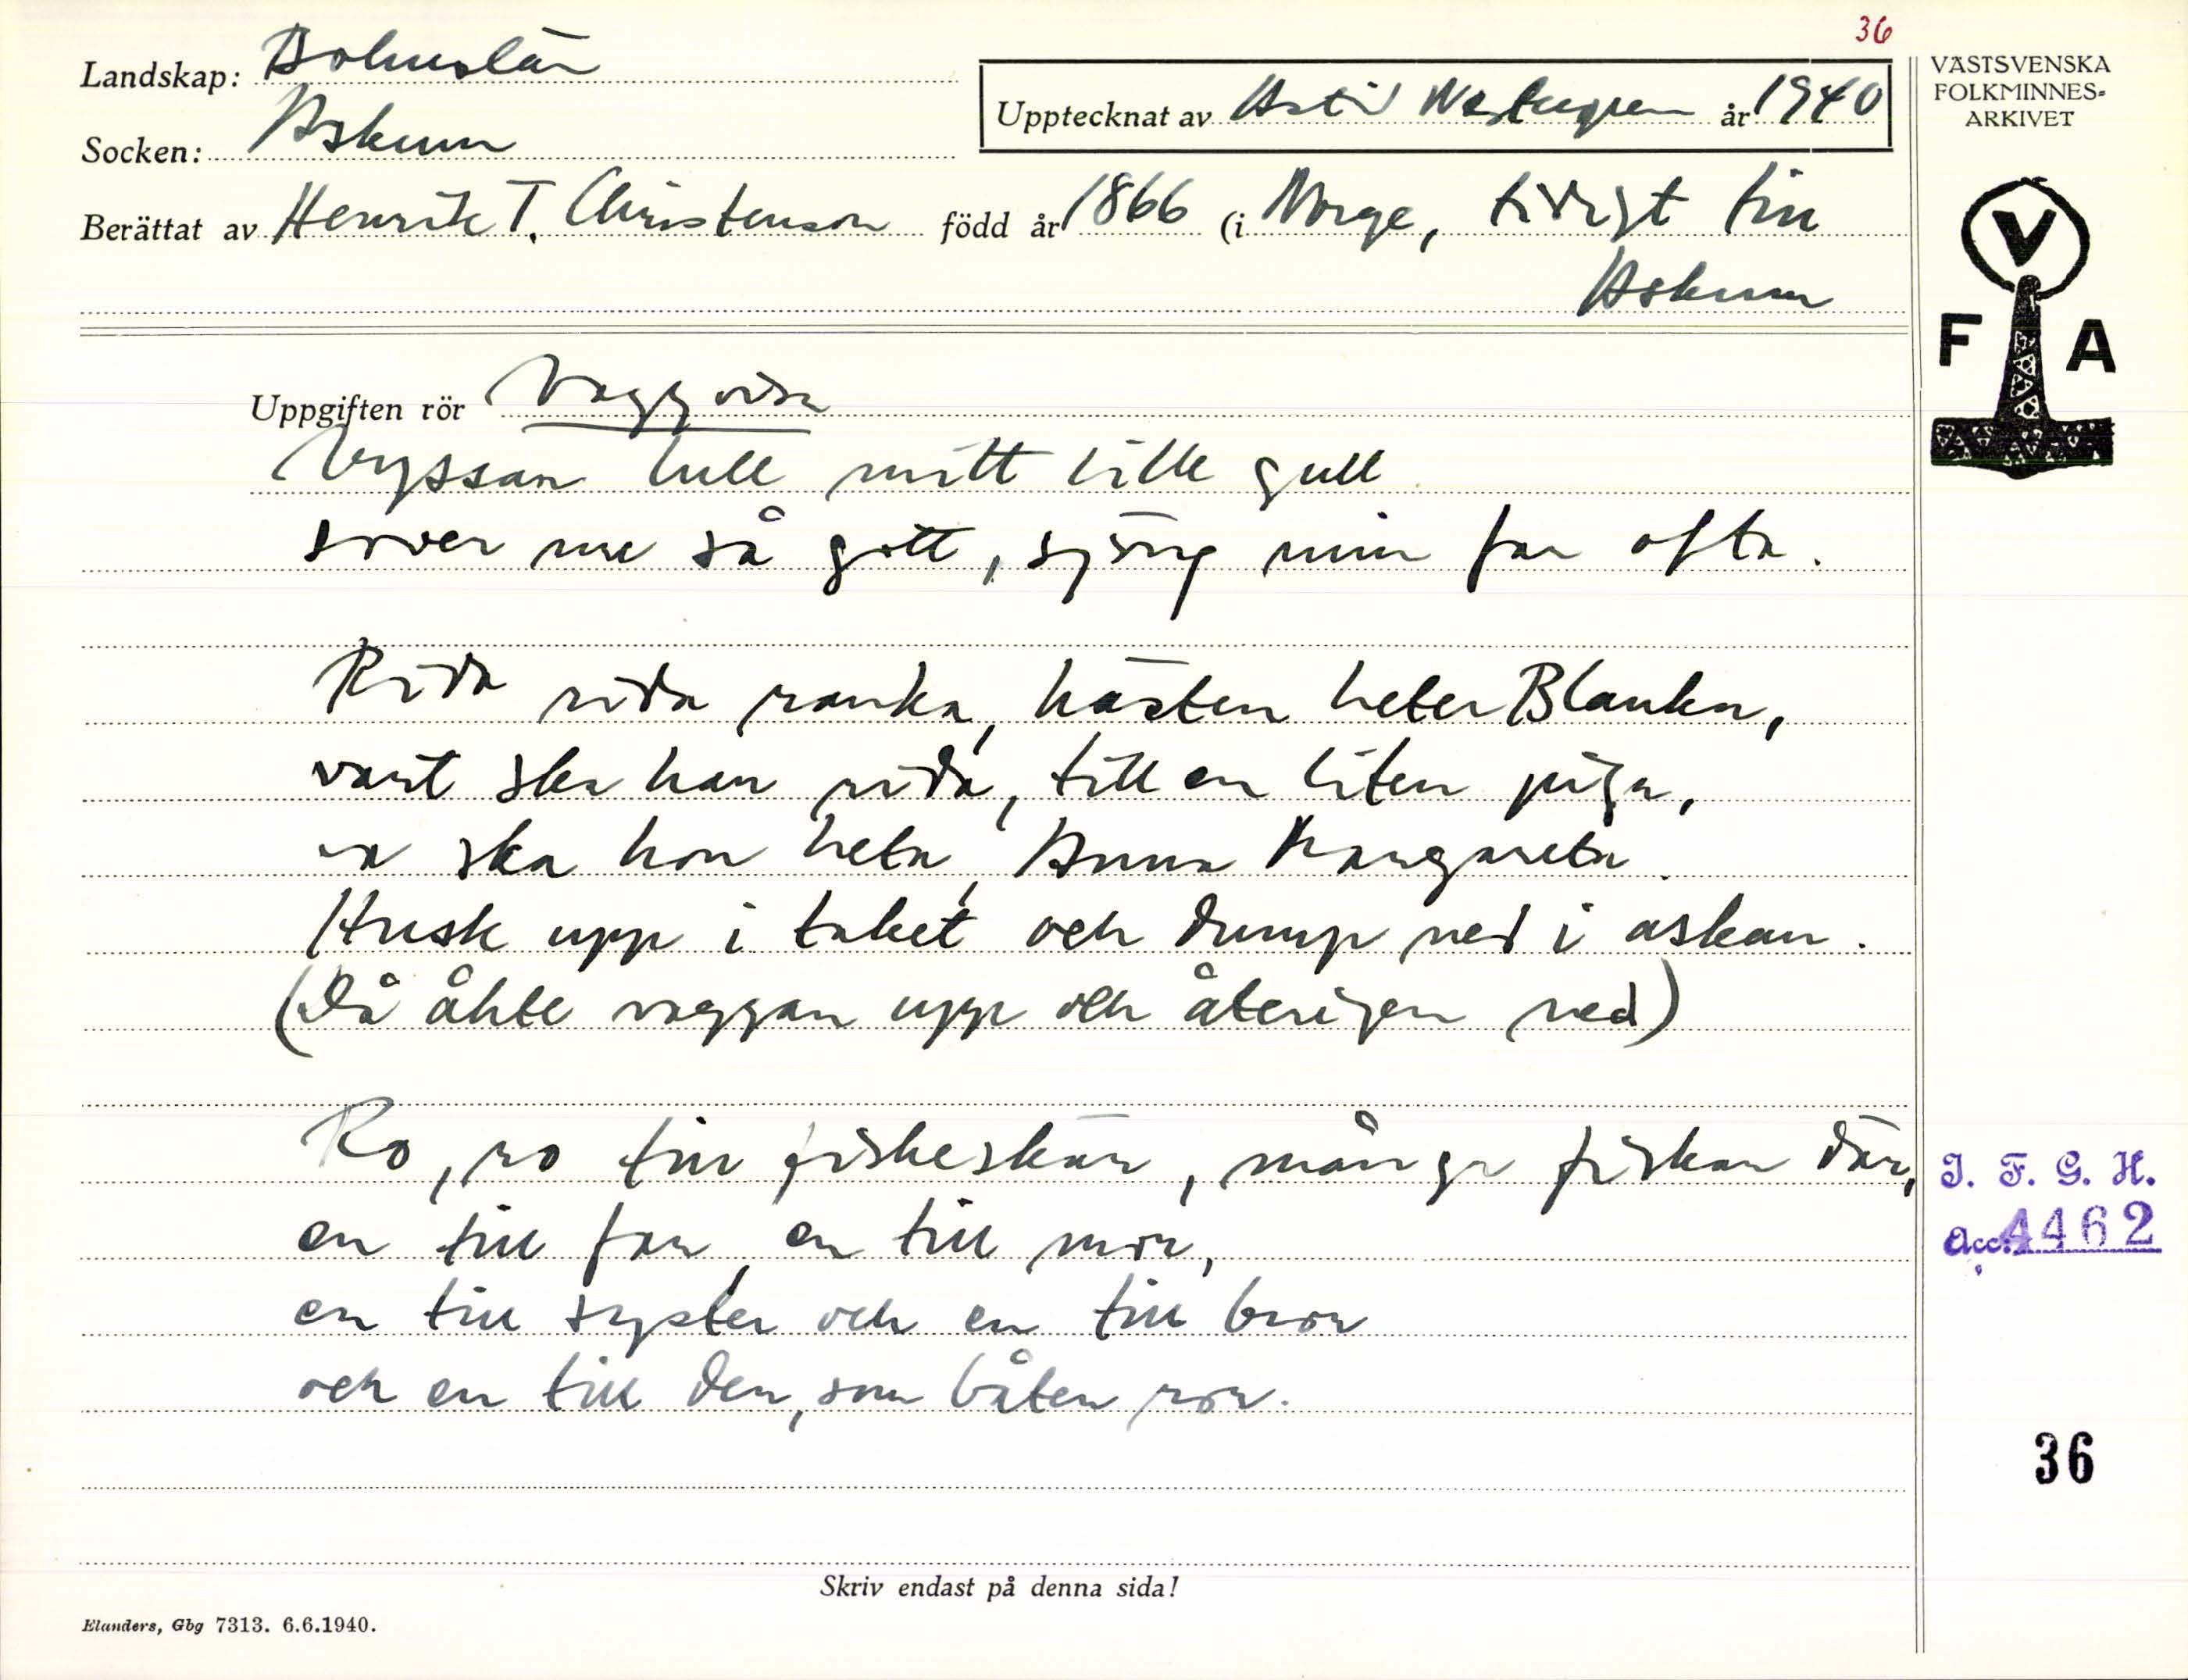 36
Landskap: Bohuslän
Socken: Askum
Upptecknat av Astrid Westergren år 1940
Berättat av Henrik T. Christenson född år 1866 (i Norge, tidigt till
Askum
VÄSTSVENSKA
FOLKMINNES-
ARKIVET
V
F A
Uppgiften rör Vaggvisa
Vyssan lull mitt lille gull
sover nu så gott, sjöng min far ofta.
Rida rida ranka, hästen heter Blanka,
vart ska han rida, till en liten piga,
va ska hon heta, Anna Margareta.
Husk upp i taket och dump ned i askan.
(Då åkte vaggan upp och återigen ned)
Ro, ro till fiskeskär, många fiskar där,
en till far, en till mor,
en till syster och en till bror
och en till den, som båten ror.
I. F. G. H.
Acc. 4462
36
Skriv endast på denna sida!
Elanders, Gbg 7313. 6.6.1940.